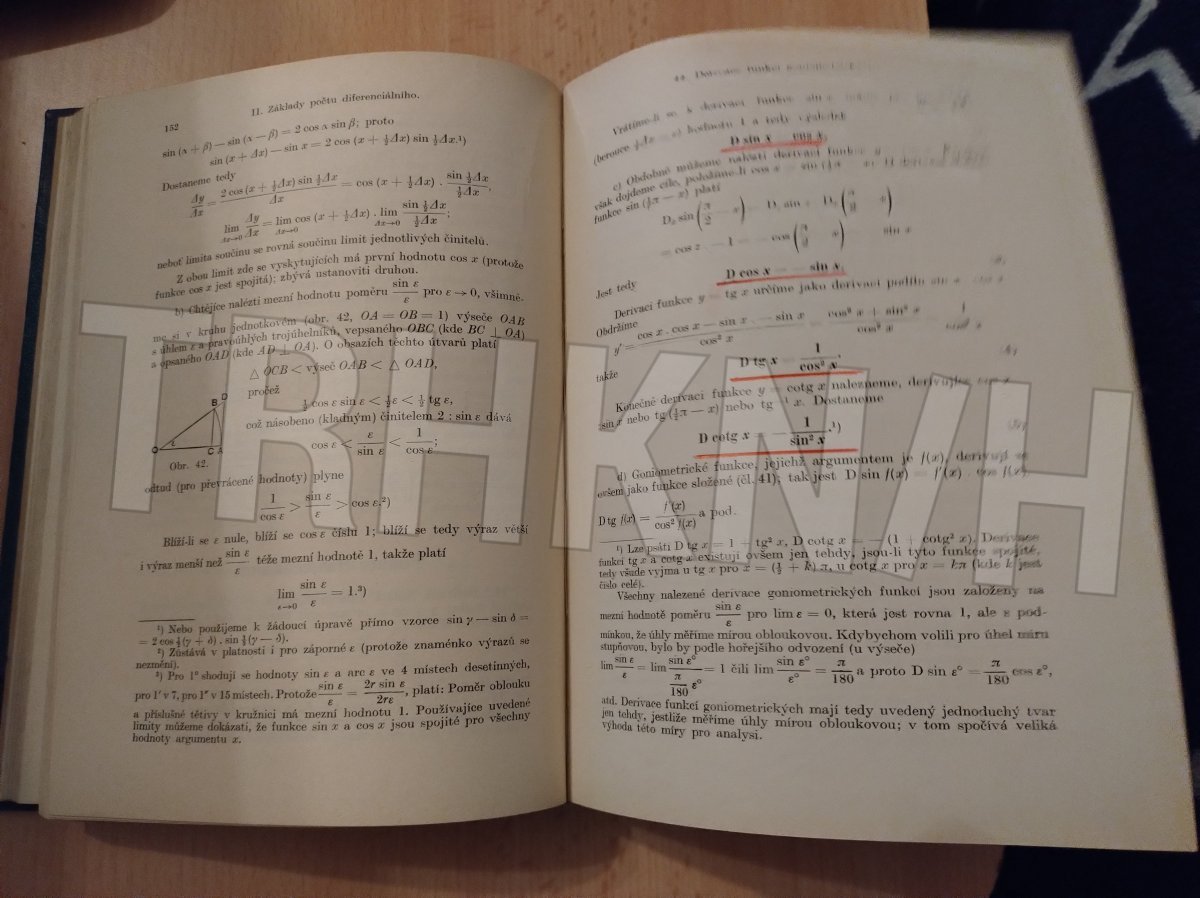 152
II. Základy počtu diferenciálního.
sin (α + β) — sin (α — β) = 2 cos α sin β; proto
sin (x + Δx) — sin x = 2 cos (x + ½Δx) sin ½Δx.¹)
Dostaneme tedy
Δy/Δx = 2 cos (x + ½Δx) sin ½Δx / Δx = cos (x + ½Δx) . sin ½Δx / ½Δx,
lim Δx→0 Δy/Δx = lim Δx→0 cos (x + ½Δx) . lim Δx→0 sin ½Δx / ½Δx;
neboť limita součinu se rovná součinu limit jednotlivých činitelů.
Z obou limit zde se vyskytujících má první hodnotu cos x (protože
funkce cos x jest spojitá); zbývá ustanoviti druhou.
b) Chtějíce nalézti mezní hodnotu poměru sin ε / ε pro ε → 0, všimně-
me si v kruhu jednotkovém (obr. 42, OA = OB = 1) výseče OAB
s úhlem ε a pravoúhlých trojúhelníků, vepsaného OBC (kde BC ⊥ OA)
a opsaného OAD (kde AD ⊥ OA). O obsazích těchto útvarů platí
△ OCB < výseč OAB < △ OAD,
pročež
½ cos ε sin ε < ½ε < ½ tg ε,
což násobeno (kladným) činitelem 2 : sin ε dává
cos ε < ε / sin ε < 1 / cos ε;
D
B
O
ε
C A
Obr. 42.
odtud (pro převrácené hodnoty) plyne
1 / cos ε > sin ε / ε > cos ε.²)
Blíží-li se ε nule, blíží se cos ε číslu 1; blíží se tedy výraz větší
i výraz menší než sin ε / ε téže mezní hodnotě 1, takže platí
lim ε→0 sin ε / ε = 1.³)
¹) Nebo použijeme k žádoucí úpravě přímo vzorce sin γ — sin δ =
= 2 cos ½(γ + δ) . sin ½(γ — δ).
²) Zůstává v platnosti i pro záporné ε (protože znaménko výrazů se
nezmění).
³) Pro 1° shodují se hodnoty sin ε a arc ε ve 4 místech desetinných,
pro 1′ v 7, pro 1″ v 15 místech. Protože sin ε / ε = 2r sin ε / 2rε, platí: Poměr oblouku
a příslušné tětivy v kružnici má mezní hodnotu 1. Používajíce uvedené
limity můžeme dokázati, že funkce sin x a cos x jsou spojité pro všechny
hodnoty argumentu x.
44. Derivace funkcí
Vrátíme-li se k derivaci funkce sin x
(berouce ½Δx = ε) hodnotu 1 a tedy výsledek
D sin x = cos x.
c) Obdobně můžeme nalézti derivaci funkce
však dojdeme cíle, položíme-li cos x = sin (½π — x).
funkce sin (½π — x) platí
= cos z . — 1 = — cos (π/2 — x) = — sin x
Jest tedy
D cos x = — sin x.
Derivaci funkce y = tg x určíme jako derivaci podílu sin x
Obdržíme
y′ = cos x . cos x — sin x . — sin x / cos² x = cos² x + sin² x / cos² x = 1 / cos² x
takže
D tg x = 1 / cos² x.
Konečně derivaci funkce y = cotg x nalezneme, derivujíce cos x
: sin x nebo tg (½π — x) nebo tg⁻¹ x. Dostaneme
D cotg x = — 1 / sin² x.¹)
d) Goniometrické funkce, jejichž argumentem je f(x), derivují se
ovšem jako funkce složené (čl. 41); tak jest D sin f(x) = f′(x) . cos f(x),
D tg f(x) = f′(x) / cos² f(x) a pod.
¹) Lze psáti D tg x = 1 + tg² x, D cotg x = — (1 + cotg² x). Derivace
funkcí tg x a cotg x existují ovšem jen tehdy, jsou-li tyto funkce spojité,
tedy všude vyjma u tg x pro x = (½ + k) π, u cotg x pro x = kπ (kde k jest
číslo celé).
Všechny nalezené derivace goniometrických funkcí jsou založeny na
mezní hodnotě poměru sin ε / ε pro lim ε = 0, která jest rovna 1, ale s pod-
mínkou, že úhly měříme mírou obloukovou. Kdybychom volili pro úhel míru
stupňovou, bylo by podle hořejšího odvození (u výseče)
lim sin ε / ε = lim sin ε° / (π/180 ε°) = 1 čili lim sin ε° / ε° = π/180 a proto D sin ε° = π/180 cos ε°,
atd. Derivace funkcí goniometrických mají tedy uvedený jednoduchý tvar
jen tehdy, jestliže měříme úhly mírou obloukovou; v tom spočívá veliká
výhoda této míry pro analysi.
TRHKNIH